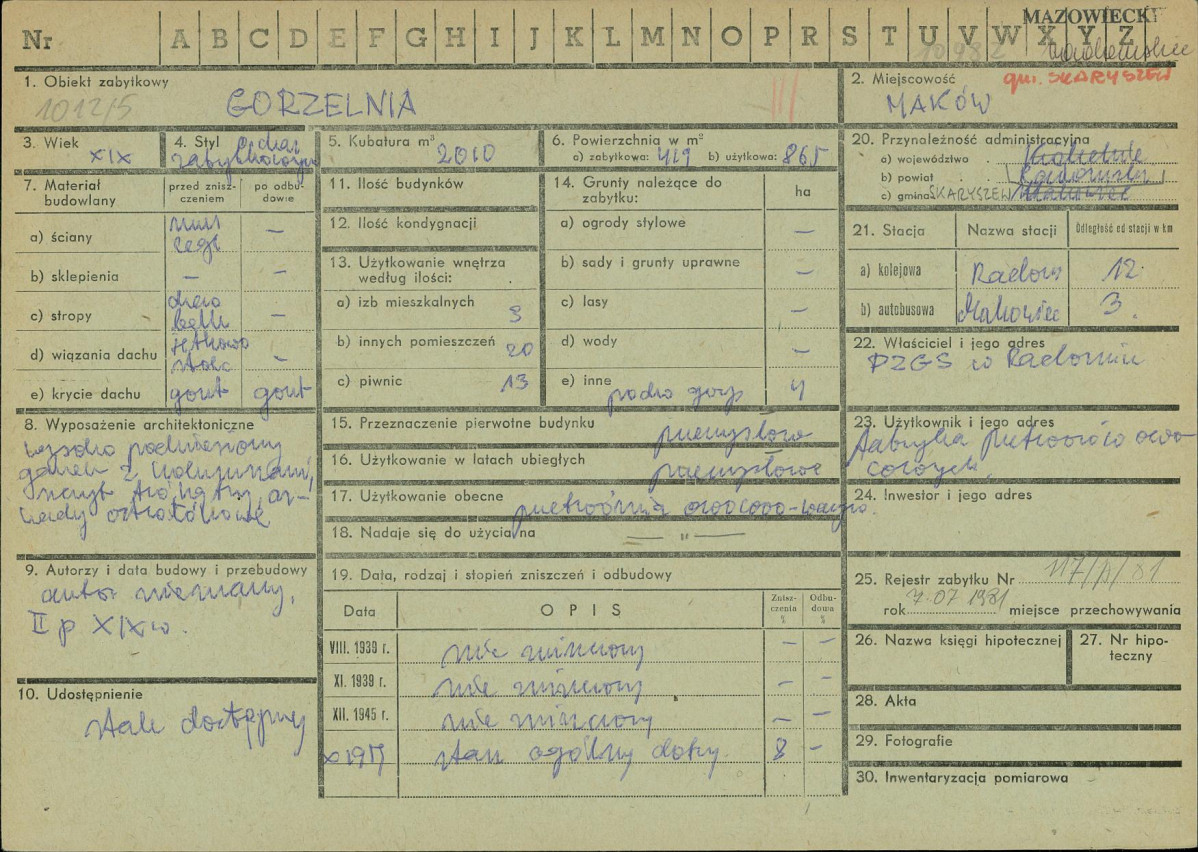 MAZOWIECKI
Nr A B C D E F G H I J K L M N O P R S T U V W X Y Z
10982
gm. SKARYSZEW
1. Obiekt zabytkowy
1012/5 GORZELNIA
2. Miejscowość
MAKÓW
3. Wiek
XIX
4. Styl
5. Kubatura m³
2010
6. Powierzchnia w m²
a) zabytkowa: 419 b) użytkowa: 865
20. Przynależność administracyjna
a) województwo Kieleckie
b) powiat Radomski
c) gmina SKARYSZEW Makowiec
7. Materiał budowlany
przed zniszczeniem
po odbudowie
a) ściany mur cegł —
b) sklepienia — —
c) stropy drew belk —
d) wiązania dachu jętkowo stolc —
e) krycie dachu gont gont
11. Ilość budynków
12. Ilość kondygnacji
13. Użytkowanie wnętrza
według ilości:
a) izb mieszkalnych 3
b) innych pomieszczeń 20
c) piwnic 13
14. Grunty należące do
zabytku: ha
a) ogrody stylowe —
b) sady i grunty uprawne —
c) lasy —
d) wody —
e) inne podw gosp 4
21. Stacja Nazwa stacji Odległość od stacji w km
a) kolejowa Radom 12
b) autobusowa Makowiec 3
22. Właściciel i jego adres
PZGS w Radomiu
8. Wyposażenie architektoniczne
wysoko podniesiony
ganek z kolumnami,
szczyt trójkątny, ar-
kady ostrołukowe
15. Przeznaczenie pierwotne budynku
przemysłowe
16. Użytkowanie w latach ubiegłych
przemysłowe
17. Użytkowanie obecne
przetwórnia owocowo-warzyw.
18. Nadaje się do użycia na — " —
23. Użytkownik i jego adres
fabryka przetworów owo-
cowych
24. Inwestor i jego adres
9. Autorzy i data budowy i przebudowy
autor nieznany,
II p XIX w.
19. Data, rodzaj i stopień zniszczeń i odbudowy
Data OPIS Zniszczenia % Odbudowa %
VIII. 1939 r. nie zniszczony — —
XI. 1939 r. nie zniszczony — —
XII. 1945 r. nie zniszczony — —
stan ogólny dobry. 8 —
25. Rejestr zabytku Nr 117/A/81
rok 7.07 1981 miejsce przechowywania
26. Nazwa księgi hipotecznej
27. Nr hipo-
teczny
10. Udostępnienie
stale dostępny
28. Akta
29. Fotografie
30. Inwentaryzacja pomiarowa